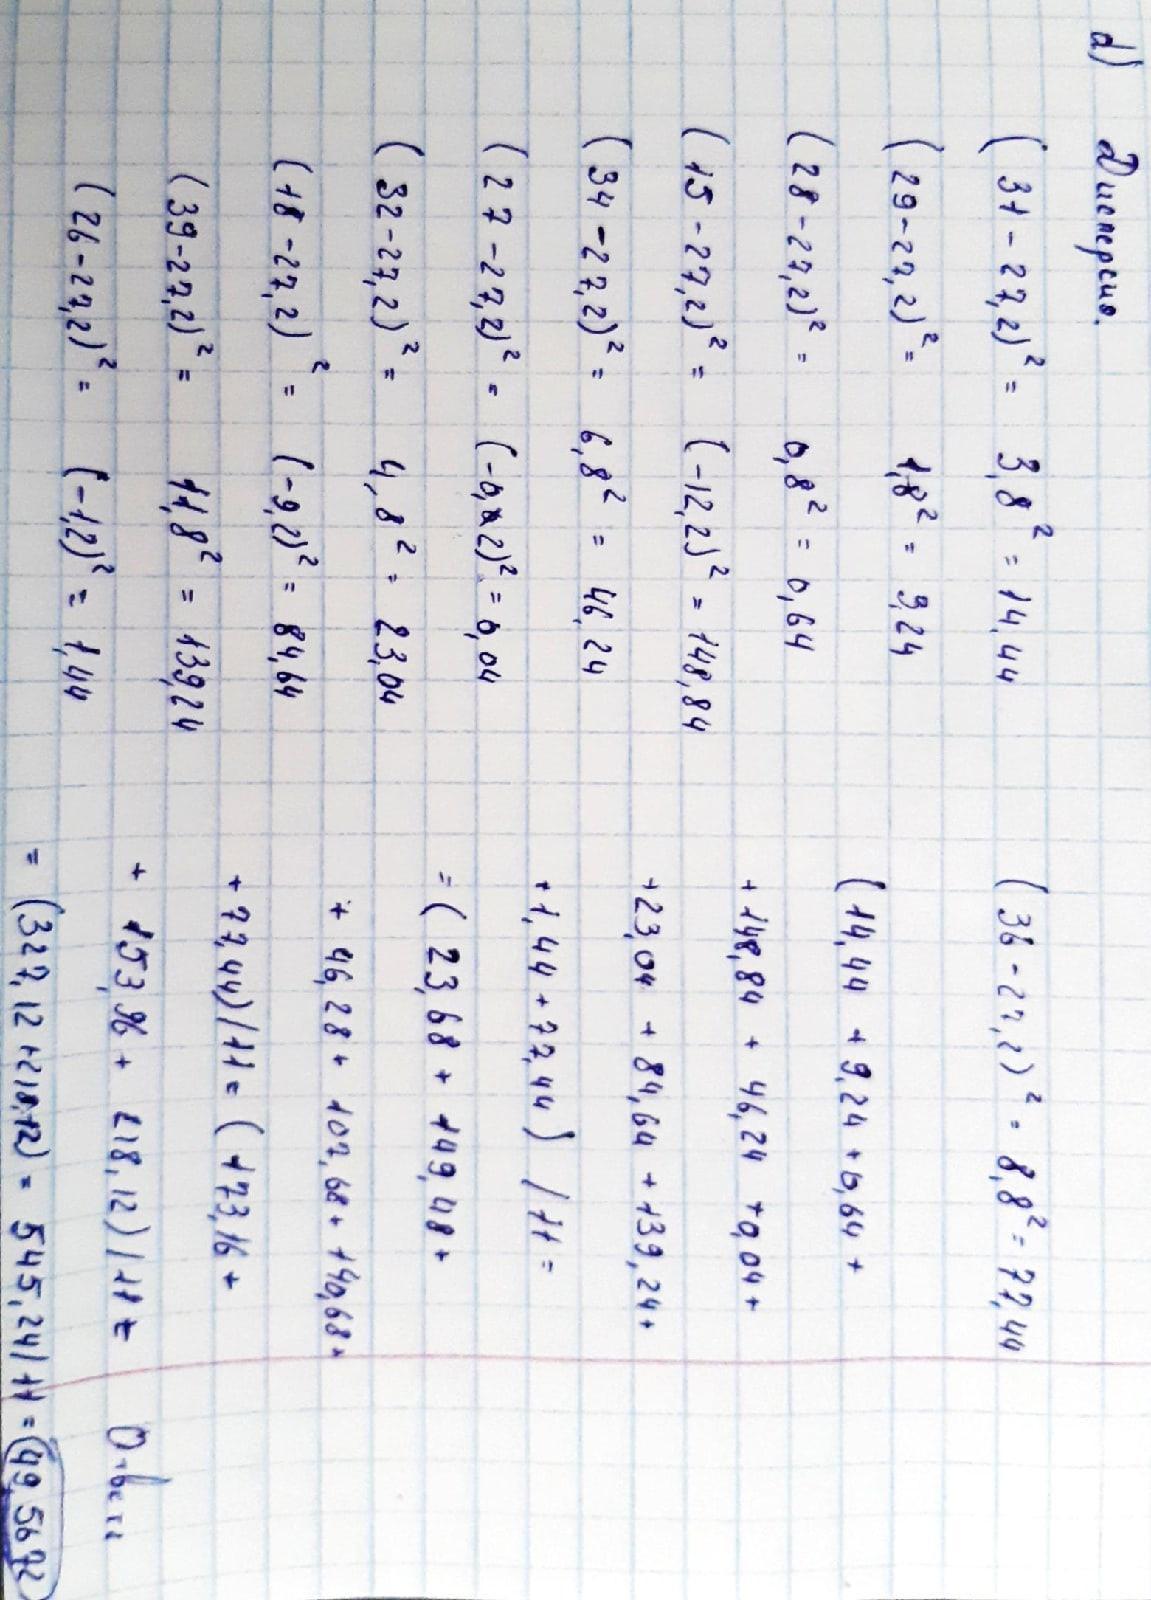 d) Дисперсия.
(31 - 27,2)² = 3,8² = 14,44
(29 - 27,2)² = 1,8² = 9,24
(28 - 27,2)² = 0,8² = 0,64
(15 - 27,2)² = (-12,2)² = 148,84
(34 - 27,2)² = 6,8² = 46,24
(27 - 27,2)² = (-0,2)² = 0,04
(32 - 27,2)² = 4,8² = 23,04
(18 - 27,2)² = (-9,2)² = 84,64
(39 - 27,2)² = 11,8² = 139,24
(26 - 27,2)² = (-1,2)² = 1,44
(36 - 27,2)² = 8,8² = 77,44
(14,44 + 9,24 + 0,64 +
+ 148,84 + 46,24 + 0,04 +
+ 23,04 + 84,64 + 139,24 +
+ 1,44 + 77,44) / 11 =
= (23,68 + 149,48 +
+ 46,28 + 107,68 + 140,68 +
+ 77,44) / 11 = (173,16 +
+ 153,96 + 218,12) / 11 =
= (327,12 + 218,12) = 545,24 / 11 = 49,5672
Ответ